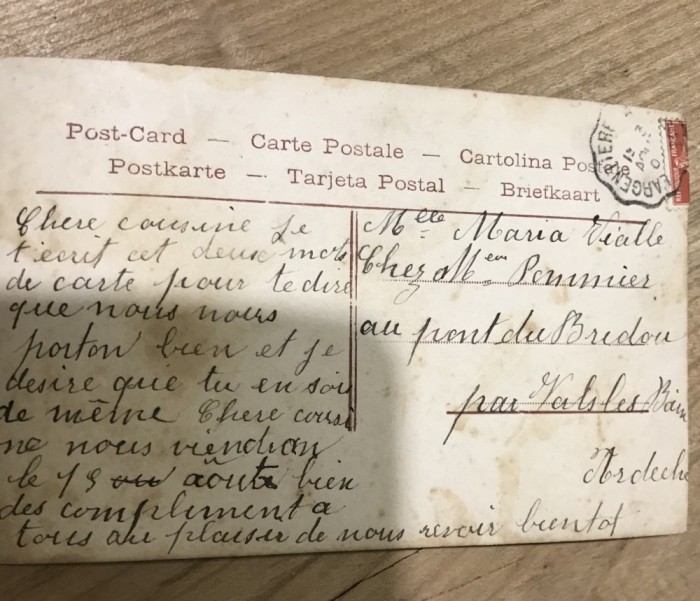 Post-Card — Carte Postale — Cartolina Postale
Postkarte — Tarjeta Postal — Briefkaart
LARGENTIERE
Chere cousine Je
t'ecrit cet deux mots
de carte pour te dire
que nous nous
porton bien et je
desire que tu en soi
de même Chere cousi
ne nous viendron
le 15 ou août bien
des compliment a
tous au plaiser de nous revoir bientot
Melle Maria Vialle
Chez Mer Pommier
au pont du Bridou
par Vals les Bain
Ardeche